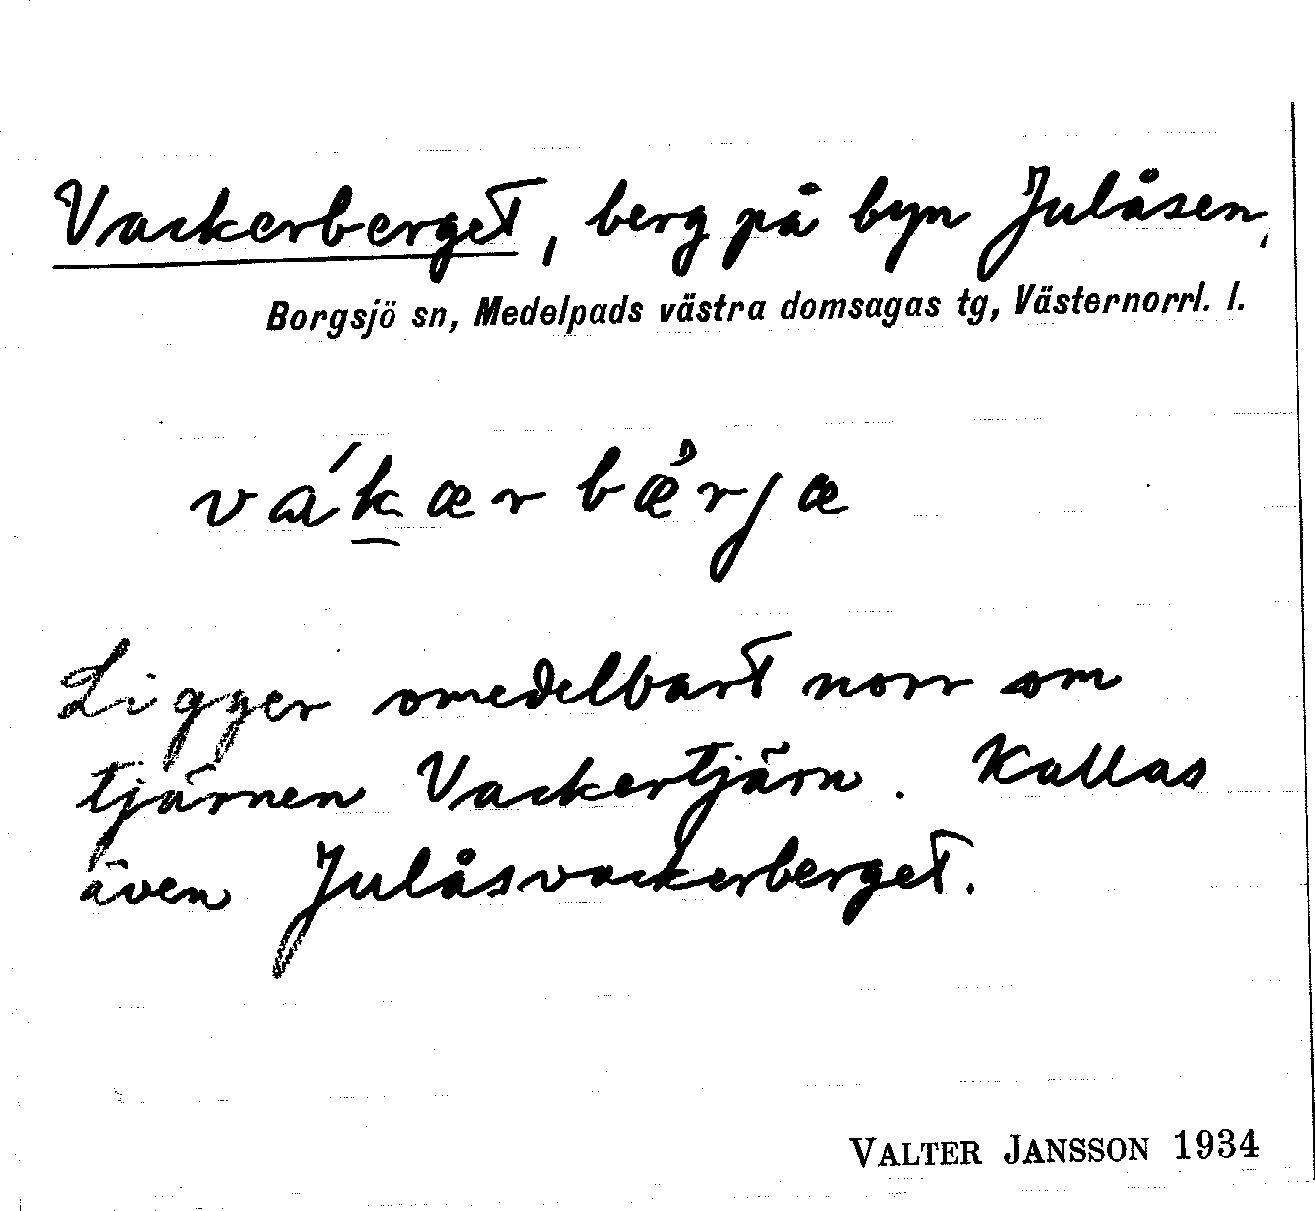 Vackerberget, berg på byn Julåsen,
Borgsjö sn, Medelpads västra domsagas tg, Västernorrl. l.
vákær bæ̉rjæ
Ligger omedelbart norr om
tjärnen Vackertjärn. Kallas
även Julåsvackerberget.
VALTER JANSSON 1934